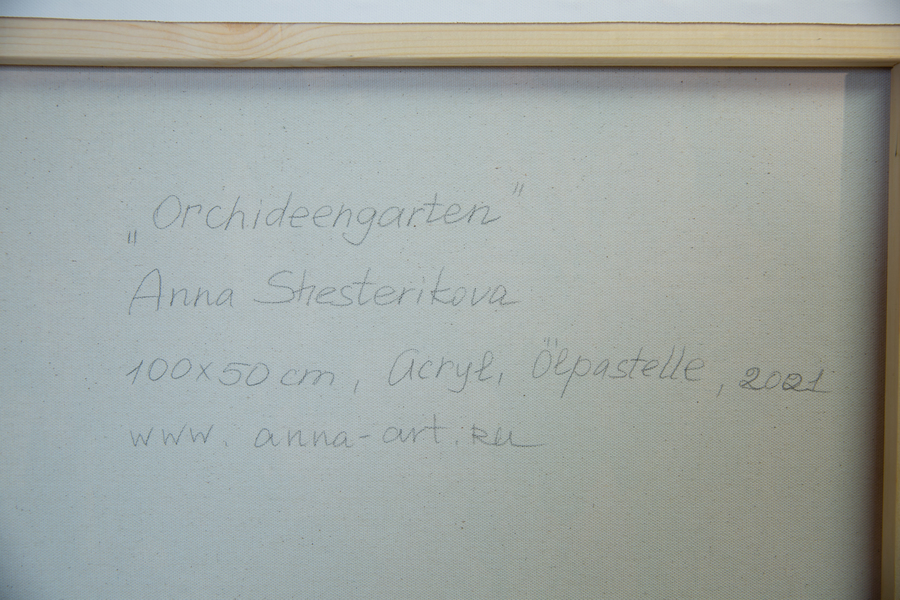 „Orchideengarten"
Anna Shesterikova
100x50 cm, Acryl, Ölpastelle, 2021
www.anna-art.ru